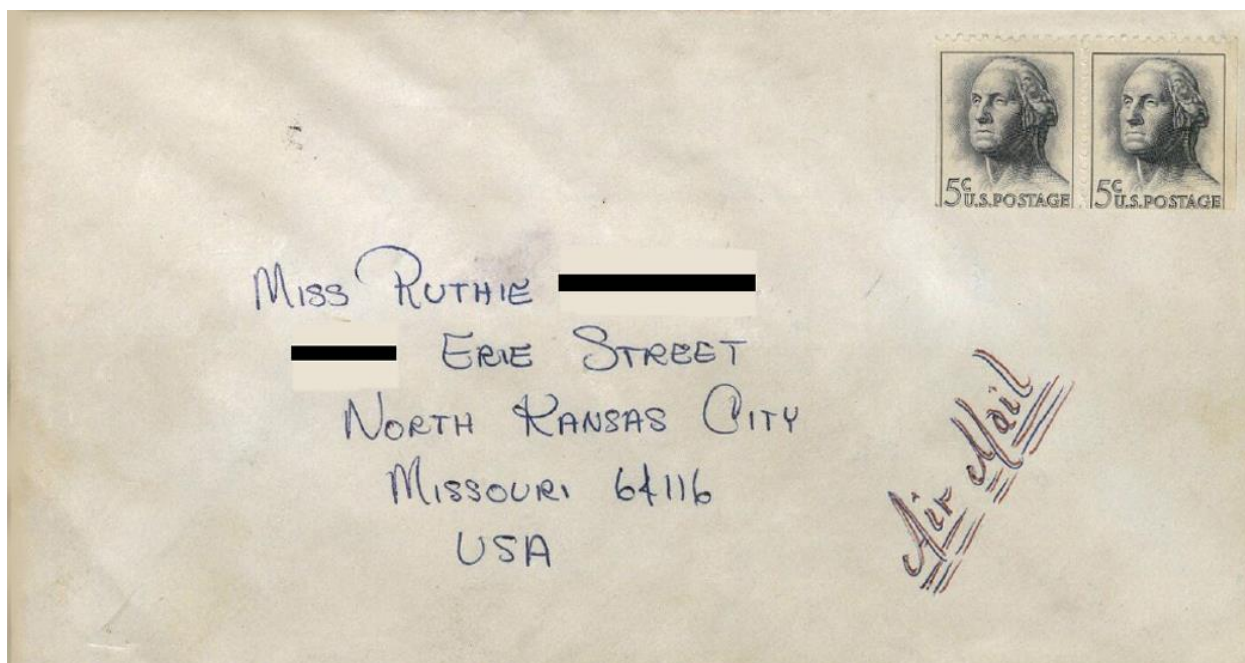 5¢ U.S.POSTAGE 5¢ U.S.POSTAGE
Miss Ruthie
Erie Street
North Kansas City
Missouri 64116
USA
Air Mail